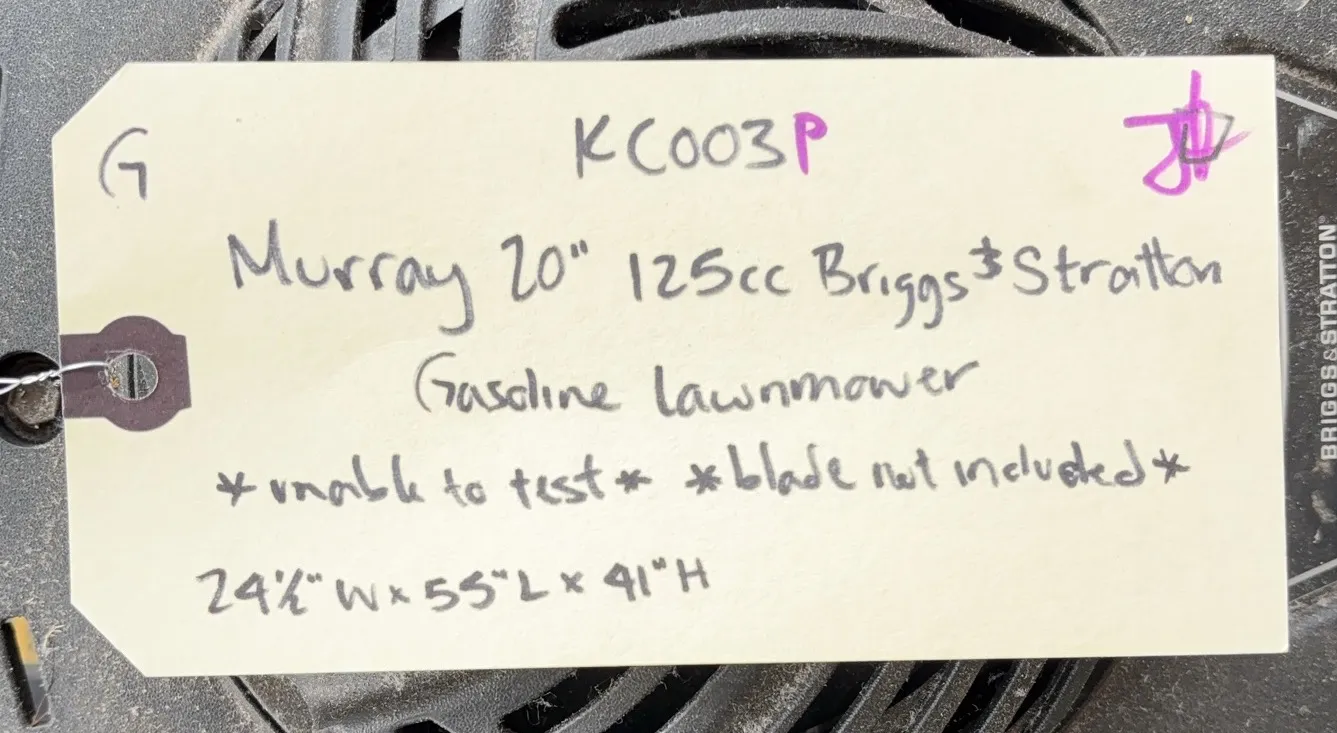 G
KC003P
Murray 20" 125cc Briggs & Stratton
Gasoline lawnmower
*unable to test* *blade not included*
24½" W x 55" L x 41" H
BRIGGS&STRATTON